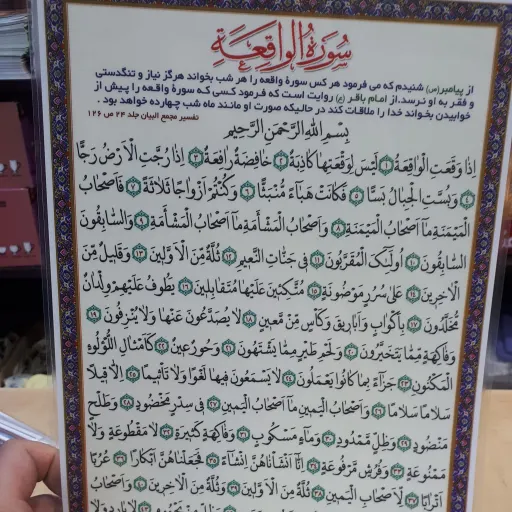 سُورَةُ الوَاقِعَةِ
از پیامبر(ص) شنیدم که می فرمود هر کس سورهٔ واقعه را هر شب بخواند هرگز نیاز و تنگدستی
و فقر به او نرسد. از امام باقر (ع) روایت است که فرمود کسی کـه سورهٔ واقعه را پیش از
خوابیدن بخواند خدا را ملاقات کند در حالیکه صورت او مانند ماه شب چهارده خواهد بود .
تفسیر مجمع البیان جلد ۲۴ ص ۱۲۶
بِسْمِ اللّٰهِ الرَّحْمٰنِ الرَّحِيمِ
اِذَا وَقَعَتِ الْوَاقِعَةُ ﴿۱﴾ لَيْسَ لِوَقْعَتِهَا كَاذِبَةٌ ﴿۲﴾ خَافِضَةٌ رَافِعَةٌ ﴿۳﴾ اِذَا رُجَّتِ الْاَرْضُ رَجًّا
﴿۴﴾ وَبُسَّتِ الْجِبَالُ بَسًّا ﴿۵﴾ فَكَانَتْ هَبَاءً مُنْبَثًّا ﴿۶﴾ وَكُنْتُمْ اَزْوَاجًا ثَلَاثَةً ﴿۷﴾ فَاَصْحَابُ
الْمَيْمَنَةِ مَا اَصْحَابُ الْمَيْمَنَةِ ﴿۸﴾ وَاَصْحَابُ الْمَشْأَمَةِ مَا اَصْحَابُ الْمَشْأَمَةِ ﴿۹﴾ وَالسَّابِقُونَ
السَّابِقُونَ ﴿۱۰﴾ اُولٰئِكَ الْمُقَرَّبُونَ ﴿۱۱﴾ فِى جَنَّاتِ النَّعِيمِ ﴿۱۲﴾ ثُلَّةٌ مِنَ الْاَوَّلِينَ ﴿۱۳﴾ وَقَلِيلٌ مِنَ
الْاٰخِرِينَ ﴿۱۴﴾ عَلىٰ سُرُرٍ مَوْضُونَةٍ ﴿۱۵﴾ مُتَّكِئِينَ عَلَيْهَا مُتَقَابِلِينَ ﴿۱۶﴾ يَطُوفُ عَلَيْهِمْ وِلْدَانٌ
مُخَلَّدُونَ ﴿۱۷﴾ بِاَكْوَابٍ وَاَبَارِيقَ وَكَأْسٍ مِنْ مَعِينٍ ﴿۱۸﴾ لَا يُصَدَّعُونَ عَنْهَا وَلَا يُنْزِفُونَ ﴿۱۹﴾
وَفَاكِهَةٍ مِمَّا يَتَخَيَّرُونَ ﴿۲۰﴾ وَلَحْمِ طَيْرٍ مِمَّا يَشْتَهُونَ ﴿۲۱﴾ وَحُورٌ عِينٌ ﴿۲۲﴾ كَاَمْثَالِ اللُّؤْلُؤِ
الْمَكْنُونِ ﴿۲۳﴾ جَزَاءً بِمَا كَانُوا يَعْمَلُونَ ﴿۲۴﴾ لَا يَسْمَعُونَ فِيهَا لَغْوًا وَلَا تَأْثِيمًا ﴿۲۵﴾ اِلَّا قِيلًا
سَلَامًا سَلَامًا ﴿۲۶﴾ وَاَصْحَابُ الْيَمِينِ مَا اَصْحَابُ الْيَمِينِ ﴿۲۷﴾ فِى سِدْرٍ مَخْضُودٍ ﴿۲۸﴾ وَطَلْحٍ
مَنْضُودٍ ﴿۲۹﴾ وَظِلٍّ مَمْدُودٍ ﴿۳۰﴾ وَمَاءٍ مَسْكُوبٍ ﴿۳۱﴾ وَفَاكِهَةٍ كَثِيرَةٍ ﴿۳۲﴾ لَا مَقْطُوعَةٍ وَلَا
مَمْنُوعَةٍ ﴿۳۳﴾ وَفُرُشٍ مَرْفُوعَةٍ ﴿۳۴﴾ اِنَّا اَنْشَأْنَاهُنَّ اِنْشَاءً ﴿۳۵﴾ فَجَعَلْنَاهُنَّ اَبْكَارًا ﴿۳۶﴾ عُرُبًا
اَتْرَابًا ﴿۳۷﴾ لِاَصْحَابِ الْيَمِينِ ﴿۳۸﴾ ثُلَّةٌ مِنَ الْاَوَّلِينَ ﴿۳۹﴾ وَثُلَّةٌ مِنَ الْاٰخِرِينَ ﴿۴۰﴾ وَاَصْحَابُ